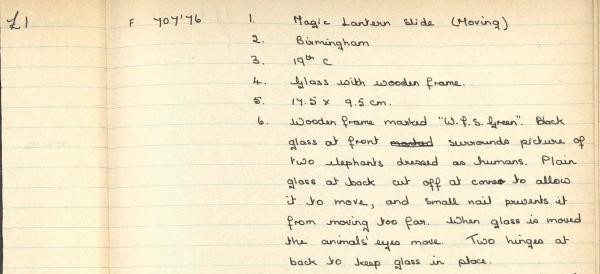 £1 F 707'76 1. Magic Lantern Slide (Moving)
2. Birmingham
3. 19th C
4. Glass with wooden frame.
5. 17.5 x 9.5 cm.
6. Wooden frame marked "W.F.S. Green". Black
glass at front marked surrounds picture of
two elephants dressed as humans. Plain
glass at back cut off at corner to allow
it to move, and small nail prevents it
from moving too far. When glass is moved
the animals' eyes move. Two hinges at
back to keep glass in place.